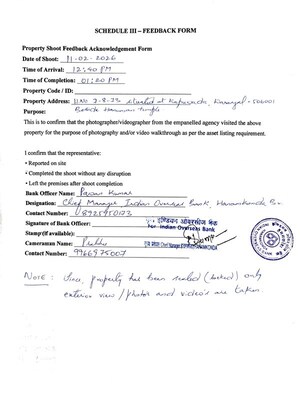 SCHEDULE III – FEEDBACK FORM
Property Shoot Feedback Acknowledgement Form
Date of Shoot: 11-02-2026
Time of Arrival: 12:40 PM
Time of Completion: 01:20 PM
Property Code / ID:
Property Address: H.No 2-8-32 situated at Kapuwada, Hanamkonda - 506001
Purpose: Beside Hanuman temple
This is to confirm that the photographer/videographer from the empanelled agency visited the above
property for the purpose of photography and/or video walkthrough as per the asset listing requirement.
I confirm that the representative:
• Reported on site
• Completed the shoot without any disruption
• Left the premises after shoot completion
Bank Officer Name: Pavan Kumar
Designation: Chief Manager Indian Overseas Bank, Hanamkonda Br.
Contact Number: 8925950173
इण्डियन ओवरसीज बैंक
For Indian Overseas Bank
Signature of Bank Officer:
Stamp(If available):
Cameraman Name:
Contact Number: 9966975007
Note: Since, property has been sealed (locked) only
exterior view / photos and video's are taken.